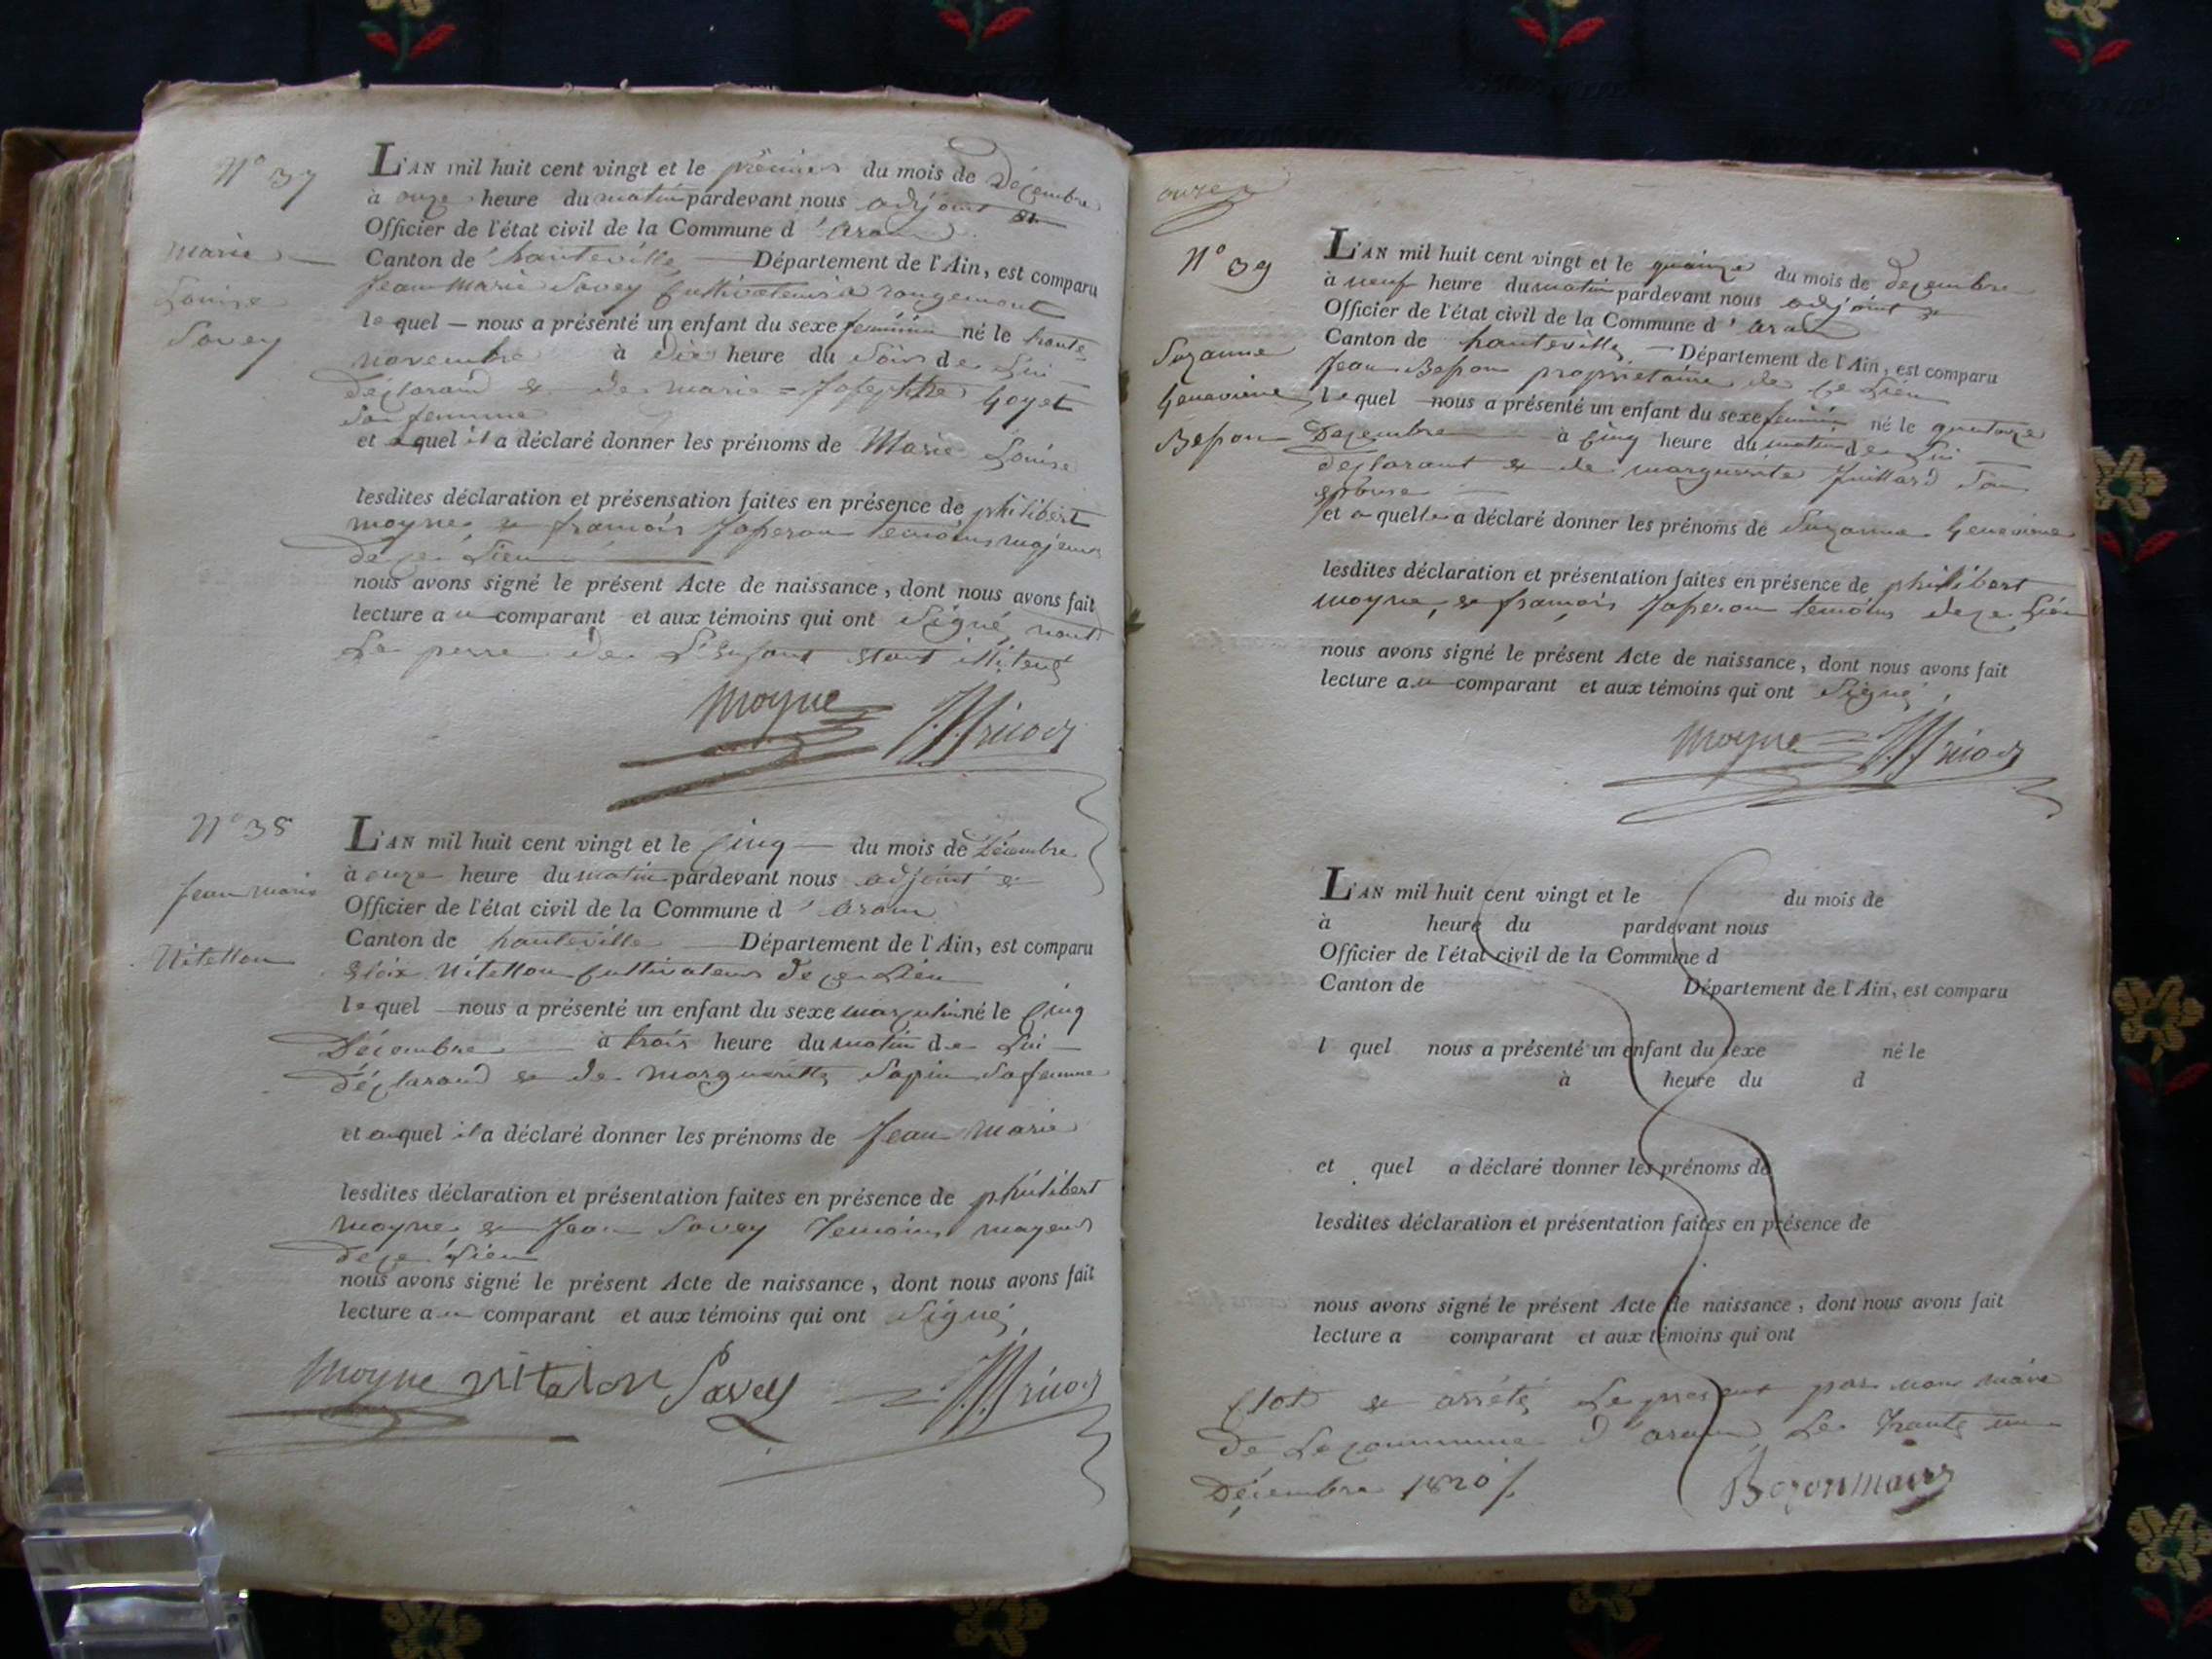 N° 37
Marie
Louise
Savey
L'AN mil huit cent vingt et le premier du mois de Décembre
à onze heure du matin pardevant nous adjoint et
Officier de l'état civil de la Commune d'aran
Canton de hauteville Département de l'Ain, est comparu
Jean Marie Savey Cultivateur a rougemont
lequel nous a présenté un enfant du sexe feminin né le trante
novembre à Dix heure du Soir de Lui
Déclarand & de marie = Josephte Goyet
Sa femme
et auquel il a déclaré donner les prénoms de Marie Louise
lesdites déclaration et présensation faites en présence de philibert
moyne & francois Japeron temoins majeurs
de ce Lieu
nous avons signé le présent Acte de naissance, dont nous avons fait
lecture au comparant et aux témoins qui ont Signé, nont
Le perre de L'Enfant Etant illiteré
Moyne
N° 38
Jean marie
Vitellon
L'AN mil huit cent vingt et le Cinq du mois de Décembre
à onze heure du matin pardevant nous adjoint &
Officier de l'état civil de la Commune d'aran
Canton de hauteville Département de l'Ain, est comparu
Eloix Vitellon Cultivateur de ce Lieu
lequel nous a présenté un enfant du sexe masculin né le Cinq
Décembre à trois heure du matin de Lui
Déclarand & de margueritte Sapin Sa femme
et auquel il a déclaré donner les prénoms de Jean Marie
lesdites déclaration et présentation faites en présence de philibert
moyne & Jean Savey Temoins mayeurs
de ce Lieu
nous avons signé le présent Acte de naissance, dont nous avons fait
lecture au comparant et aux témoins qui ont Signé,
Moyne vitalon Savey
onze
N° 39
Suzanne
Genevieve
Bepon
L'AN mil huit cent vingt et le quinze du mois de decembre
à neuf heure du matin pardevant nous adjoint &
Officier de l'état civil de la Commune d'aran
Canton de hauteville Département de l'Ain, est comparu
Jean Bepon proprietaire de ce Lieu
lequel nous a présenté un enfant du sexe feminin né le quatorze
Decembre à Cinq heure du matin de Lui
declarant & de marguerite Juillard Son
epouse
et a quelle a déclaré donner les prénoms de Suzanne Genevieve
lesdites déclaration et présentation faites en présence de philibert
moyne, & francois Japeron temoins de ce Lieu
nous avons signé le présent Acte de naissance, dont nous avons fait
lecture au comparant et aux témoins qui ont Signé,
Moyne
L'AN mil huit cent vingt et le du mois de
à heure du pardevant nous
Officier de l'état civil de la Commune d
Canton de Département de l'Ain, est comparu
l quel nous a présenté un enfant du sexe né le
à heure du d
et quel a déclaré donner les prénoms de
lesdites déclaration et présentation faites en présence de
nous avons signé le présent Acte de naissance, dont nous avons fait
lecture a comparant et aux témoins qui ont
Clos & arrété Le present par nous maire
de La commune d'aran Le Trante un
Décembre 1820
Bozon maire